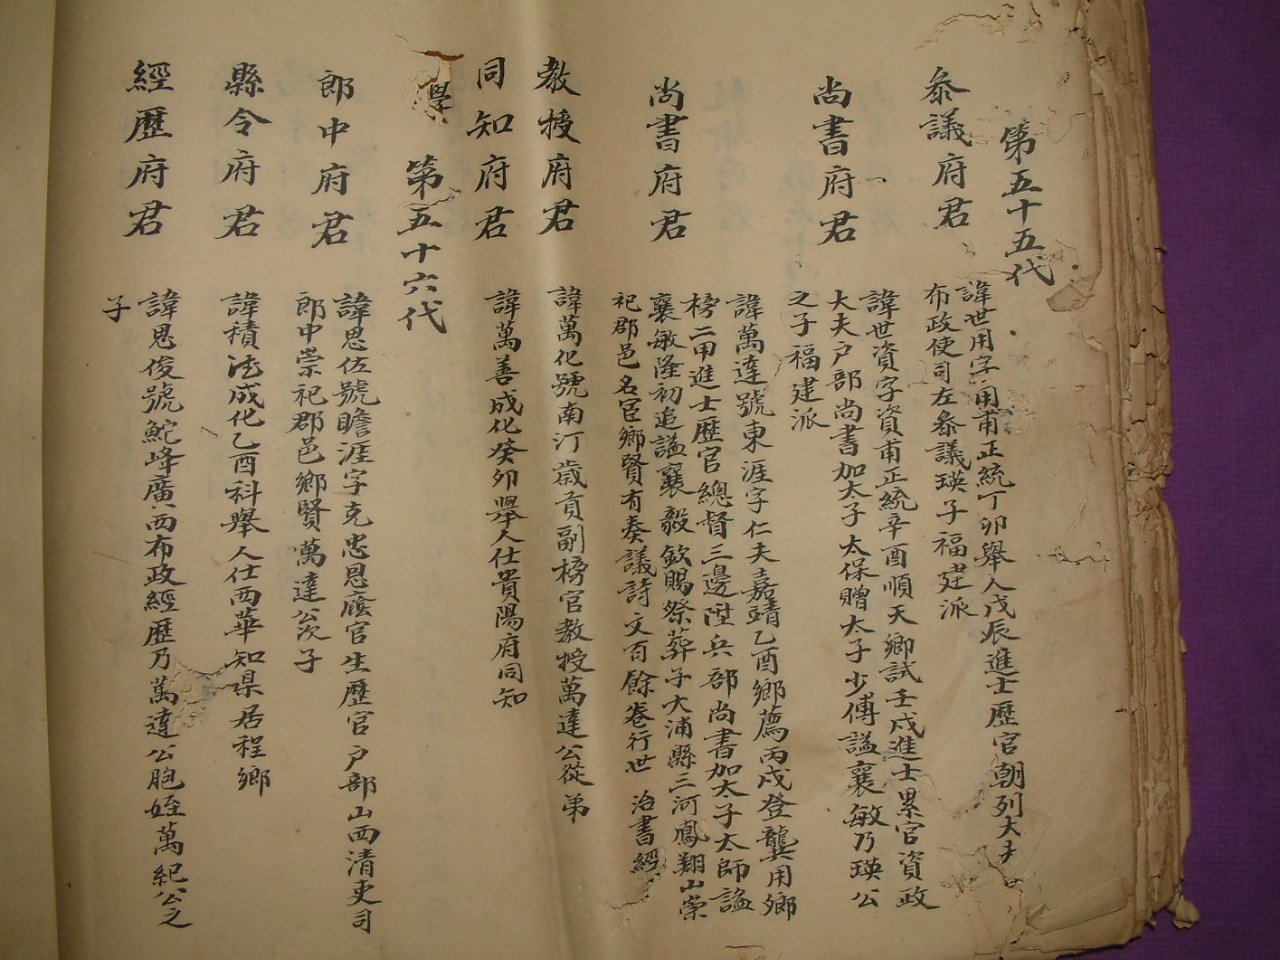 第五十五代
參議府君
諱世用字用甫正統丁卯舉人戊辰進士歷官朝列大夫
布政使司左參議瑛子福建派
尚書府君
諱世資字資甫正統辛酉順天鄉試壬戌進士累官資政
大夫户部尚書加太子太保贈太子少傅謚襄敏乃瑛公
之子福建派
尚書府君
諱萬達號東涯字仁夫嘉靖乙酉鄉薦丙戌登龔用鄉
榜二甲進士歷官總督三邊陞兵部尚書加太子太師謚
襄敏隆初追謚襄毅欽賜祭葬于大浦縣三河鳳翔山崇
祀郡邑名宦鄉賢有奏議詩文百餘卷行世 治書經
教授府君
諱萬化號南汀歲貢副榜官教授萬達公從弟
同知府君
諱萬善成化癸卯舉人仕貴陽府同知
學
第五十六代
郎中府君
諱思佐號瞻涯字克忠恩廕官生歷官户部山西清吏司
郎中崇祀郡邑鄉賢萬達公次子
縣令府君
諱積成化乙酉科舉人仕西華知县居程鄉
經歷府君
諱思俊號鮀峰廣西布政經歷乃萬達公胞姪萬紀公之
子